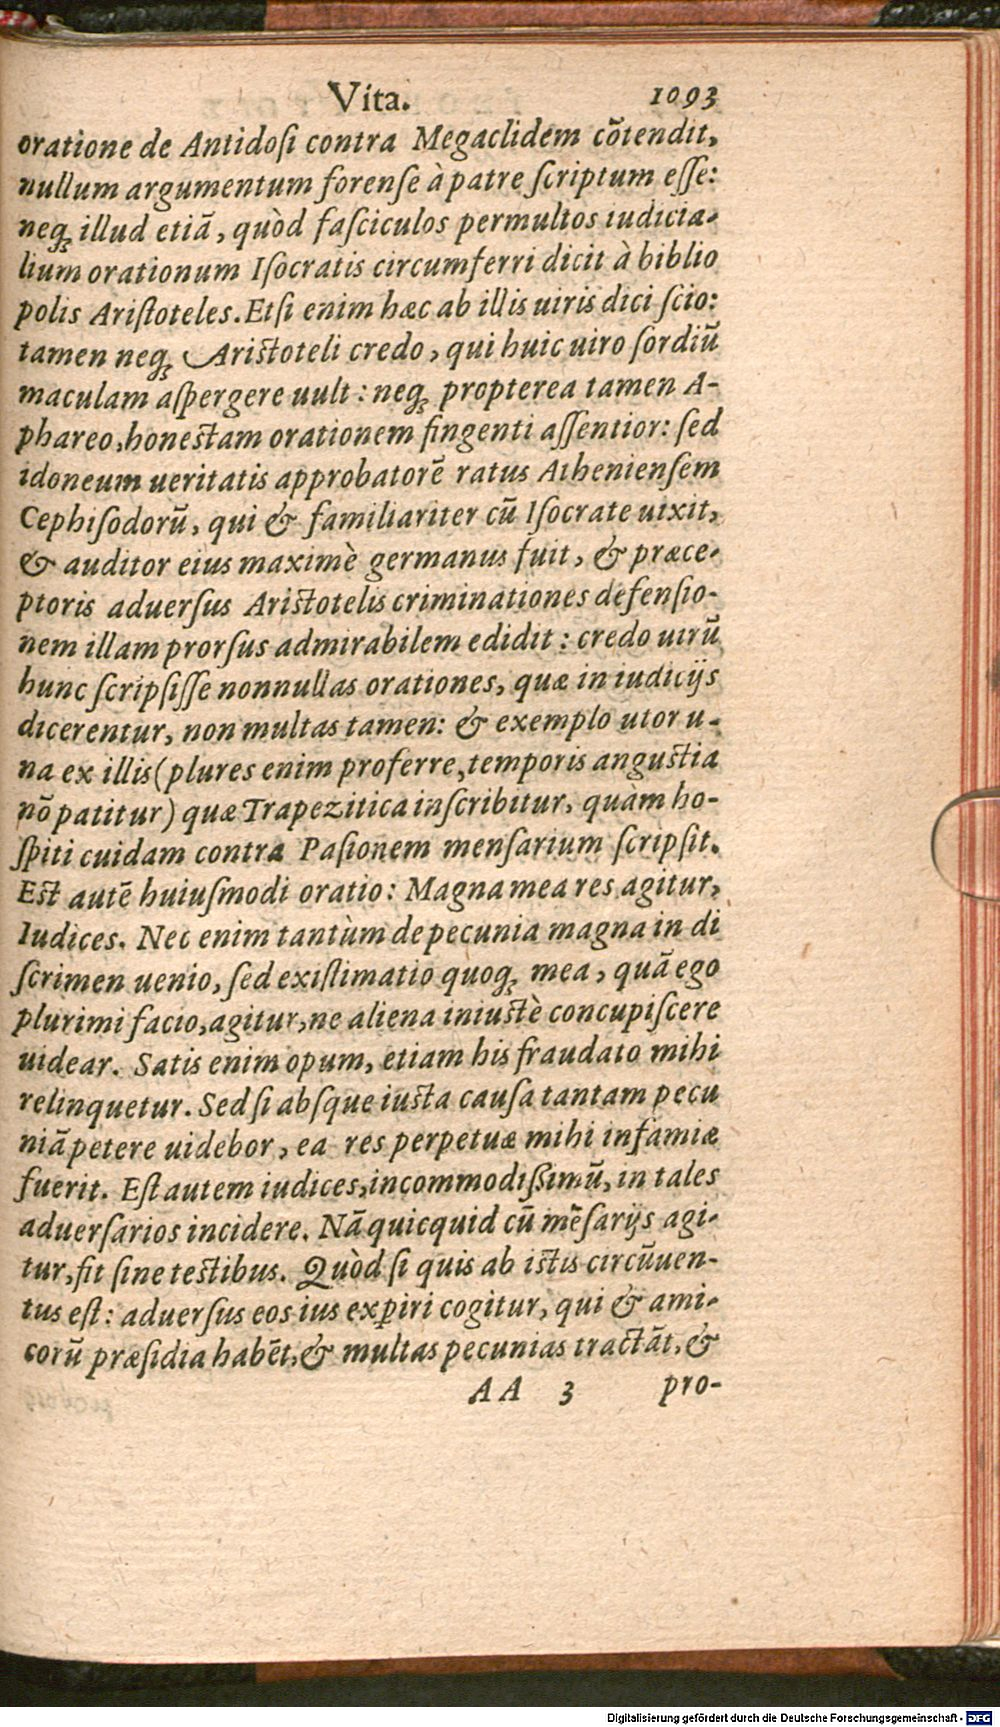 Vita. 1093
oratione de Antidoſi contra Megaclidem cōtendit,
nullum argumentum forenſe à patre ſcriptum eſſe:
neq; illud etiā, quòd faſciculos permultos iudicia-
lium orationum Iſocratis circumferri dicit à biblio
polis Ariſtoteles. Etſi enim hæc ab illis uiris dici ſcio:
tamen neq; Ariſtoteli credo, qui huic uiro ſordiū
maculam aſpergere uult: neq; propterea tamen A-
phareo, honeſtam orationem fingenti aſſentior: ſed
idoneum ueritatis approbatorē ratus Athenienſem
Cephiſodorū, qui & familiariter cū Iſocrate uixit,
& auditor eius maximè germanus fuit, & præce-
ptoris aduerſus Ariſtotelis criminationes defenſio-
nem illam prorſus admirabilem edidit: credo uirū
hunc ſcripſiſſe nonnullas orationes, quæ in iudicijs
dicerentur, non multas tamen: & exemplo utor u-
na ex illis (plures enim proferre, temporis anguſtia
nō patitur) quæ Trapezitica inſcribitur, quàm ho-
ſpiti cuidam contra Paſionem menſarium ſcripſit.
Eſt autē huiuſmodi oratio: Magna mea res agitur,
Iudices. Nec enim tantùm de pecunia magna in di
ſcrimen uenio, ſed exiſtimatio quoq; mea, quā ego
plurimi facio, agitur, ne aliena iniuſtè concupiſcere
uidear. Satis enim opum, etiam his fraudato mihi
relinquetur. Sed ſi abſque iuſta cauſa tantam pecu
niā petere uidebor, ea res perpetuæ mihi infamiæ
fuerit. Eſt autem iudices, incommodiſſimū, in tales
aduerſarios incidere. Nā quicquid cū mēſarijs agi-
tur, fit ſine teſtibus. Quòd ſi quis ab iſtis circūuen-
tus eſt: aduerſus eos ius exꝑiri cogitur, qui & ami-
corū præſidia habēt, & multas pecunias tractāt, &
AA 3 pro-
Digitalisierung gefördert durch die Deutsche Forschungsgemeinschaft - DFG